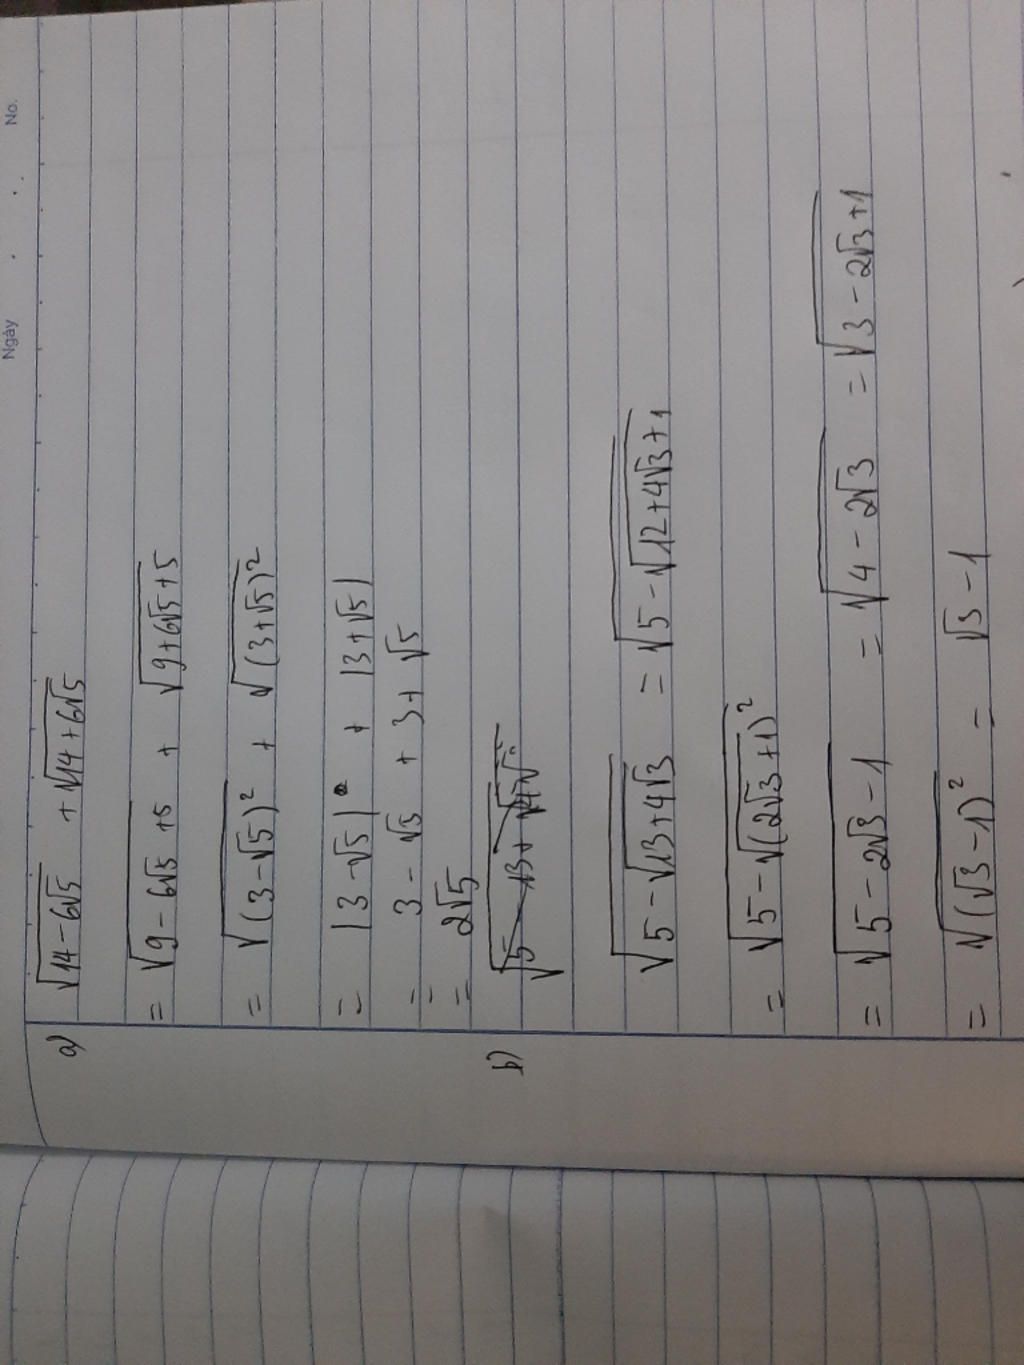 Ngày No.
a) √(14 - 6√5) + √(14 + 6√5)
= √(9 - 6√5 + 5) + √(9 + 6√5 + 5)
= √(3 - √5)² + √(3 + √5)²
= |3 - √5| + |3 + √5|
= 3 - √5 + 3 + √5
= 2√5
b)
√(5 - √(13 + 4√3)) = √(5 - √(12 + 4√3 + 1))
= √(5 - √(2√3 + 1)²)
= √(5 - 2√3 - 1) = √(4 - 2√3) = √(3 - 2√3 + 1)
= √(√3 - 1)² = √3 - 1